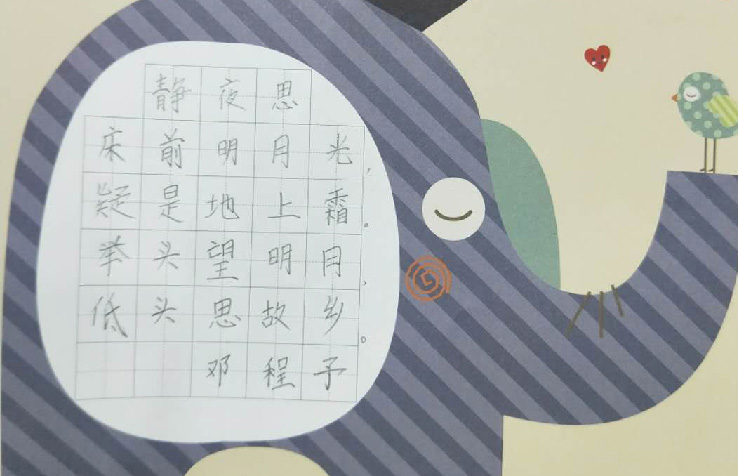 静夜思
床前明月光，
疑是地上霜。
举头望明月，
低头思故乡。
邓程予